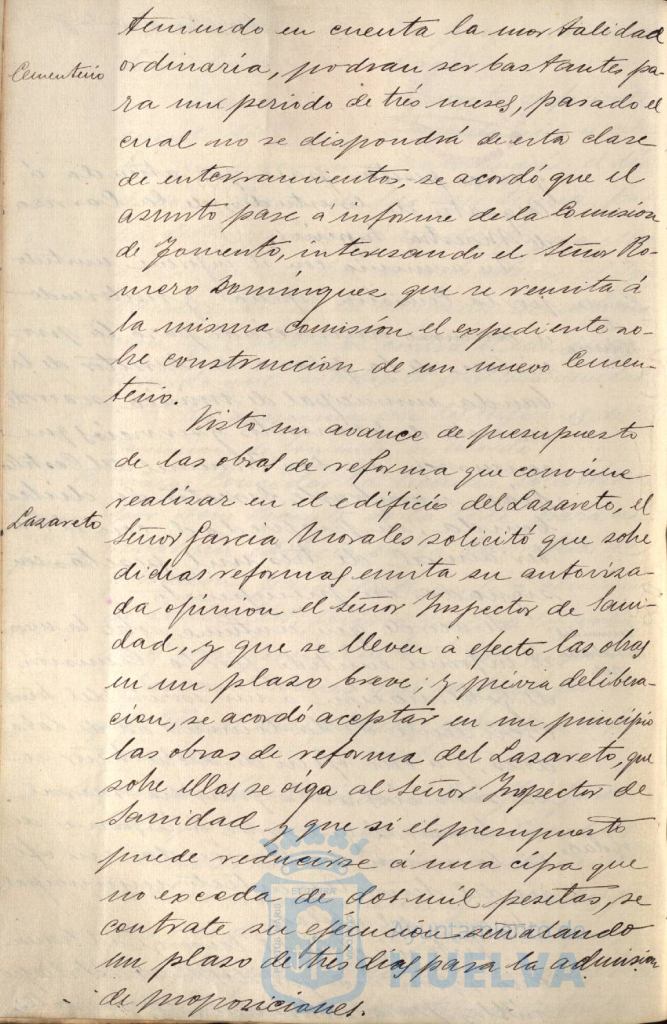 teniendo en cuenta la mortalidad
Cementerio
ordinaria, podran ser bastantes pa-
ra un periodo de três meses, pasado el
cual no se dispondrá de esta clase
de enterramientos, se acordó que el
asunto pase á informe de la Comisión
de Fomento, interesando el Señor Ro-
mero Dominguez que se remita á
la misma comisión el expediente so-
bre construcción de un nuevo Cemen-
terio.
Visto un avance de presupuesto
de las obras de reforma que conviene
realizar en el edificio del Lazareto, el
Lazareto
Señor Garcia Morales solicitó que sobre
dichas reformas emita su autoriza-
da opinion el Señor Inspector de Sani-
dad, y que se lleven á efecto las obras
en un plazo breve; y prévia delibera-
cion, se acordó aceptar en un principio
las obras de reforma del Lazareto, que
sobre ellas se oiga al Señor Inspector de
Sanidad y que si el presupuesto
puede reducirse á una cifra que
no exceda de dos mil pesetas, se
contrate su ejecución señalando
un plazo de três dias para la admisión
de proposiciones.
HUELVA